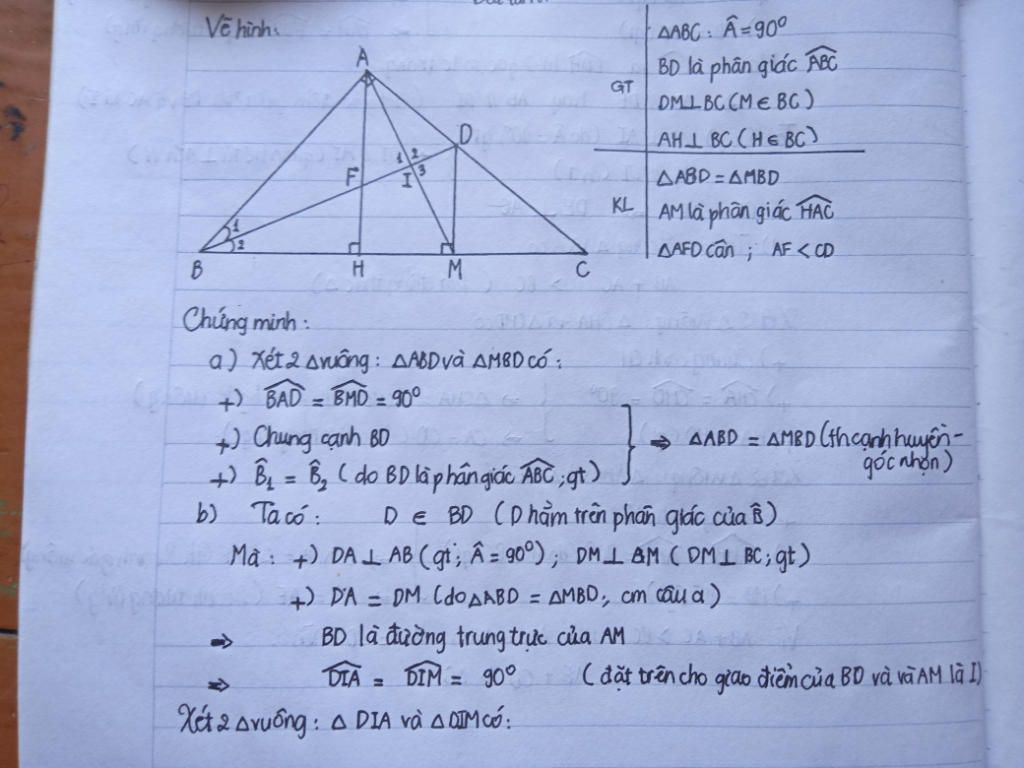 Vẽ hình:
A
B
C
D
F
I
H
M
1
2
1
2
3
GT
ΔABC: Â = 90°
BD là phân giác ABC
DM⊥BC (M ∈ BC)
AH⊥BC (H ∈ BC)
KL
ΔABD = ΔMBD
AM là phân giác HAC
ΔAFD cân ; AF < CD
Chứng minh:
a) Xét 2 Δvuông: ΔABD và ΔMBD có:
+) BAD = BMD = 90°
+) Chung cạnh BD
+) B̂1 = B̂2 (do BD là phân giác ABC; gt)
⇒ ΔABD = ΔMBD (th cạnh huyền-
góc nhọn)
b) Ta có: D ∈ BD (D nằm trên phân giác của B̂)
Mà: +) DA ⊥ AB (gt; Â = 90°); DM ⊥ BM (DM ⊥ BC; gt)
+) DA = DM (do ΔABD = ΔMBD; cm câu a)
⇒ BD là đường trung trực của AM
⇒ DIA = DIM = 90° (đặt trên cho giao điểm của BD và và AM là I)
Xét 2 Δvuông: Δ DIA và Δ DIM có: